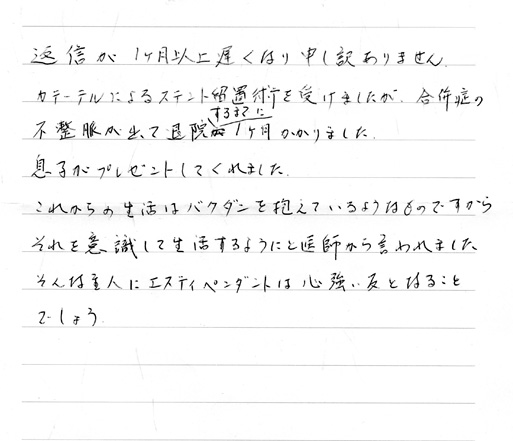 返信が1ヶ月以上遅くなり申し訳ありません.
カテーテルによるステント留置術を受けましたが、合併症の
不整脈が出て退院するまでに1ヶ月かかりました.
息子がプレゼントしてくれました.
これからの生活はバクダンを抱えているようなものですから
それを意識して生活するようにと医師から言われました
そんな主人にエスティペンダントは心強い友となること
でしょう.